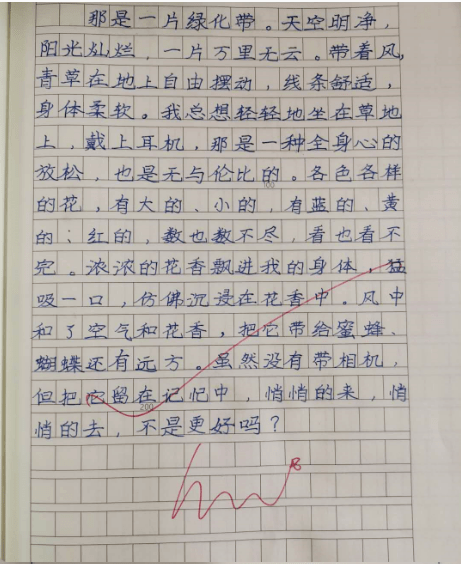 那是一片绿化带。天空明净，
阳光灿烂，一片万里无云。带着风，
青草在地上自由摆动，线条舒适，
身体柔软。我总想轻轻地坐在草地
上，戴上耳机，那是一种全身心的
放松，也是无与伦比的。各色各样
100
的花，有大的、小的，有蓝的、黄
的；红的，数也数不尽，看也看不
完。浓浓的花香飘进我的身体，猛
吸一口，仿佛沉浸在花香中。风中
和了空气和花香，把它带给蜜蜂、
蝴蝶还有远方。虽然没有带相机，
但把它留在记忆中，悄悄的来，悄
200
悄的去，不是更好吗？